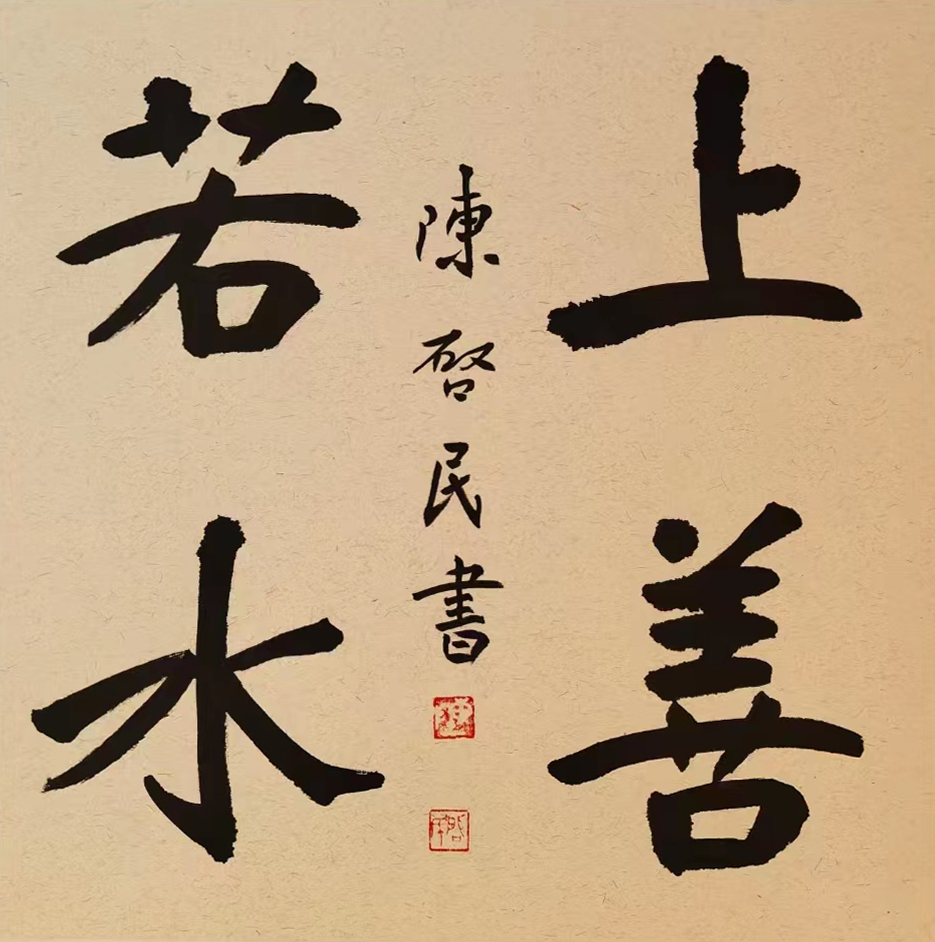 上善
若水
陳啓民書